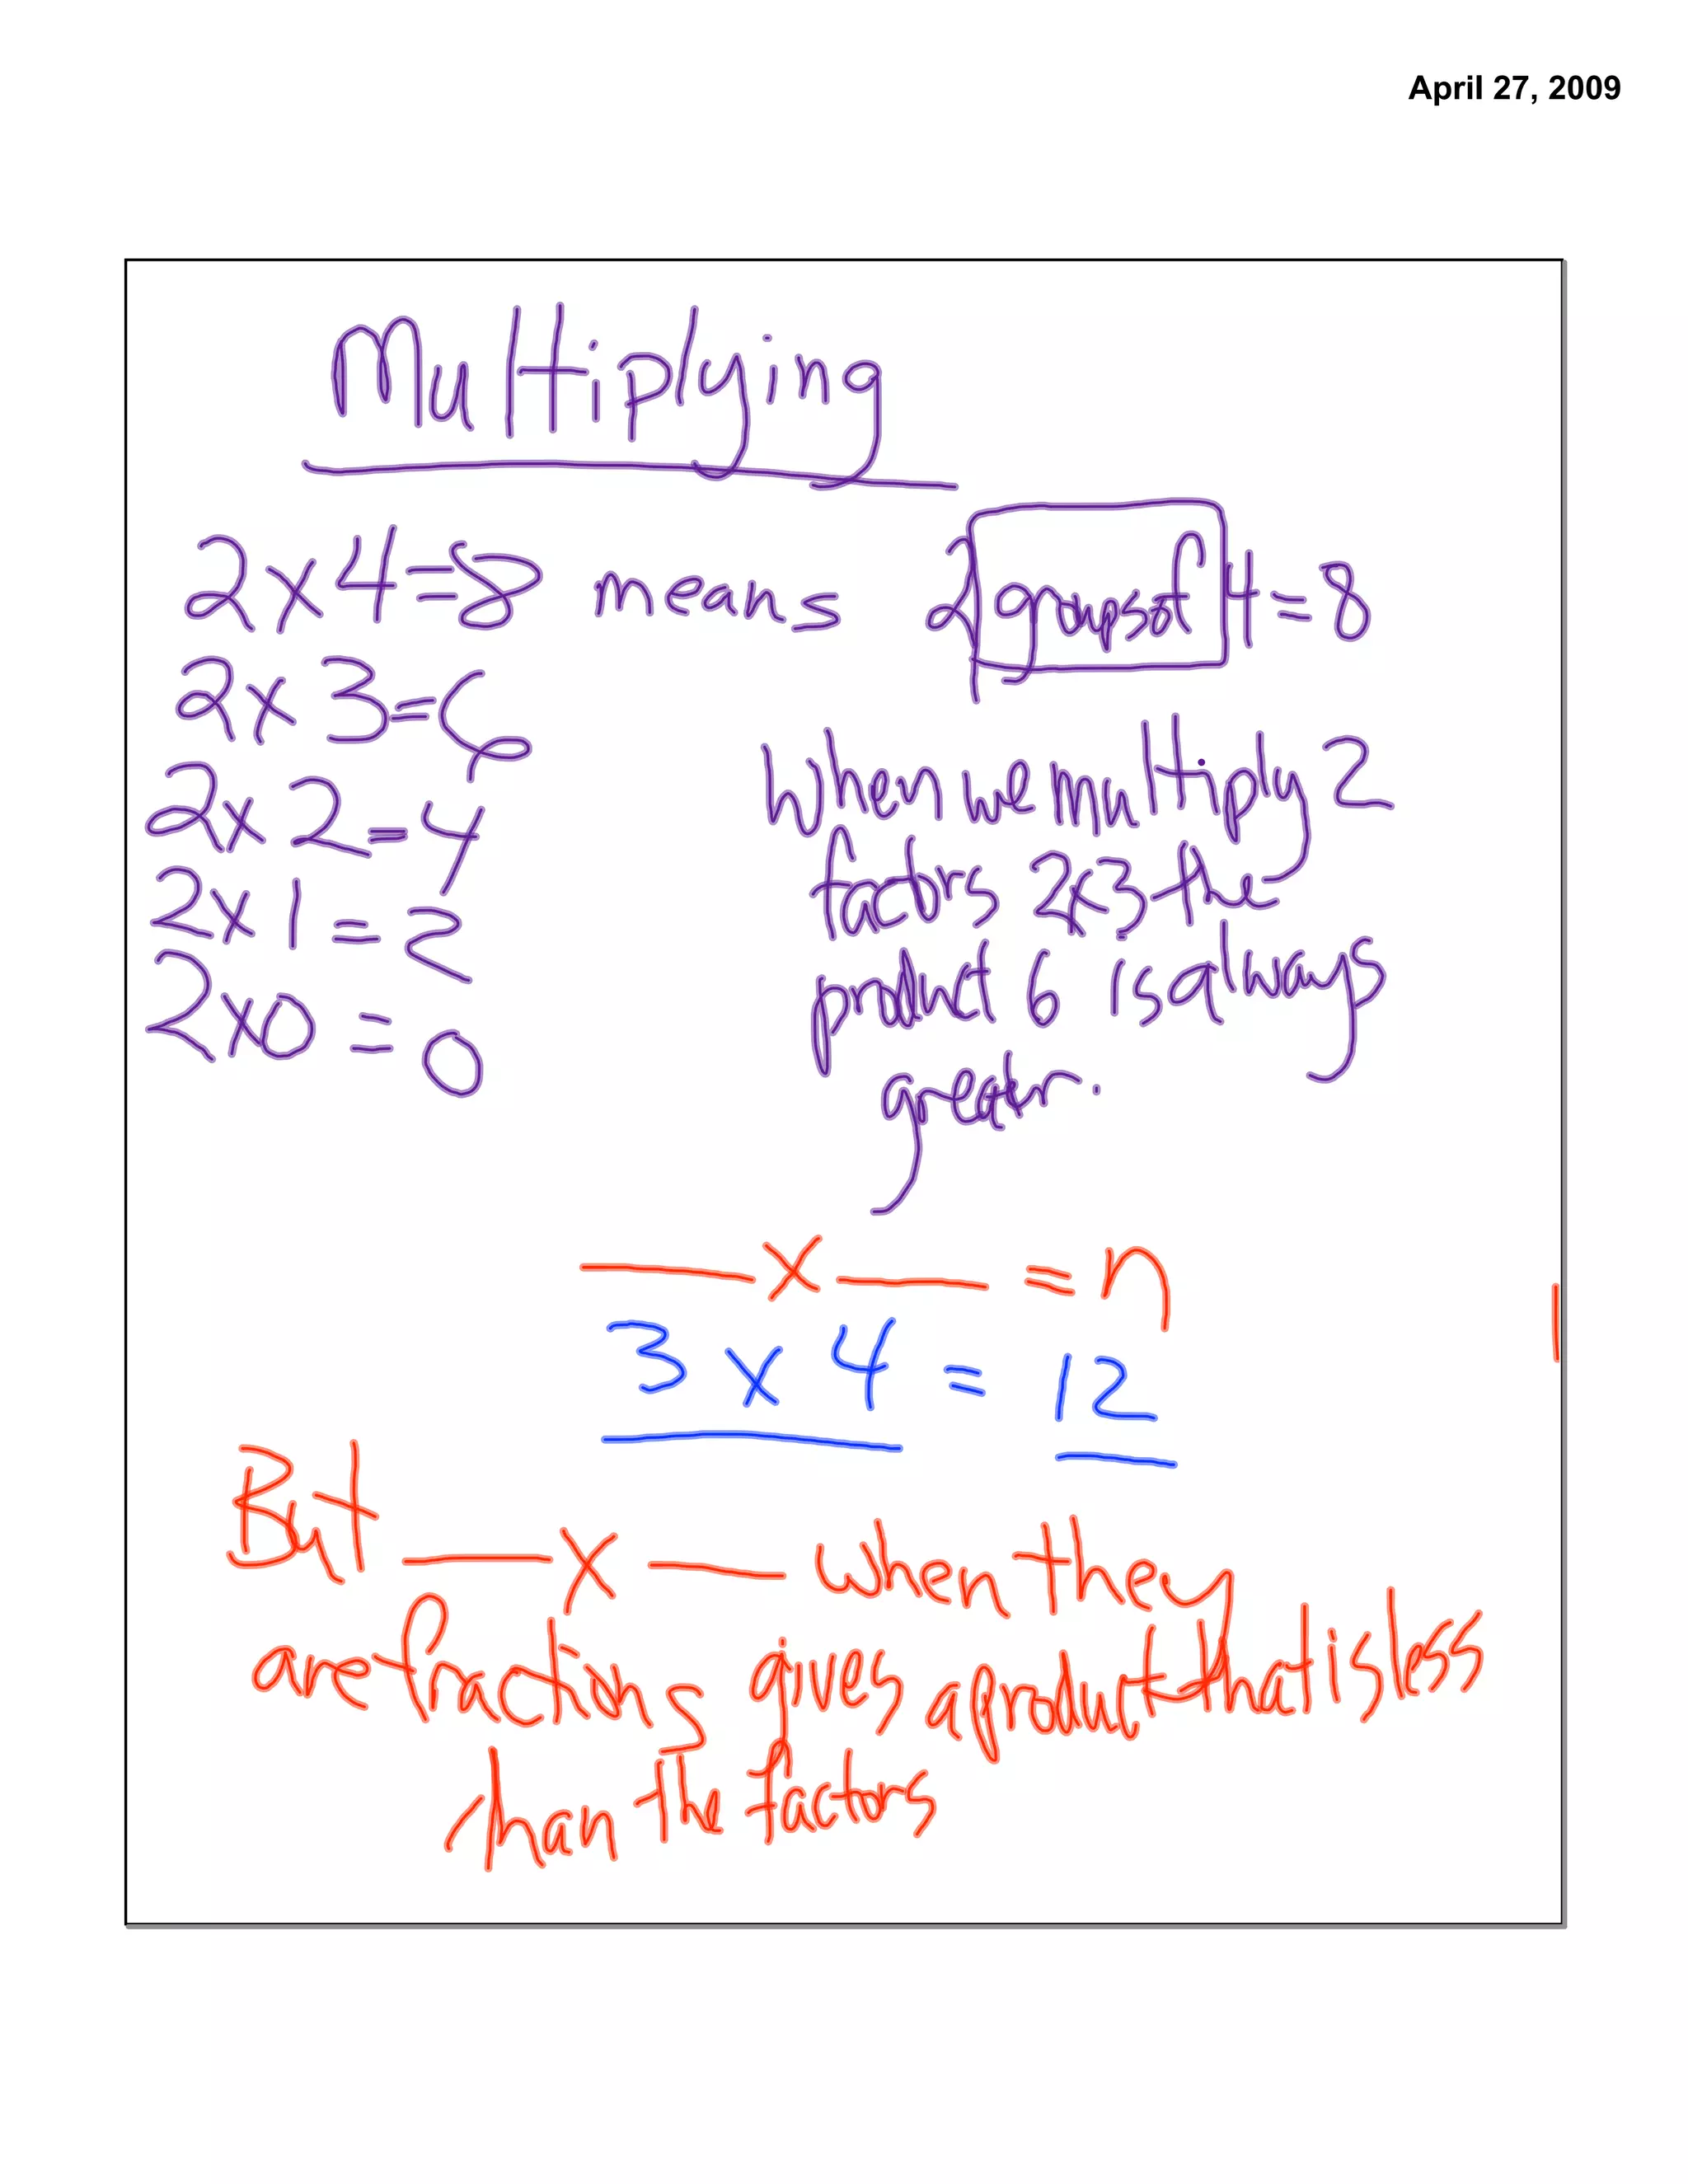 April 27, 2009
Multiplying
2x4=8 means 2 groups of 4=8
2x3=6
2x2=4
2x1=2
2x0=0
When we multiply 2
factors 2x3 the
product 6 is always
greater.
___ x ___ = n
3 x 4 = 12
But ___ x ___ when they
are fractions gives a product that is less
than the factors